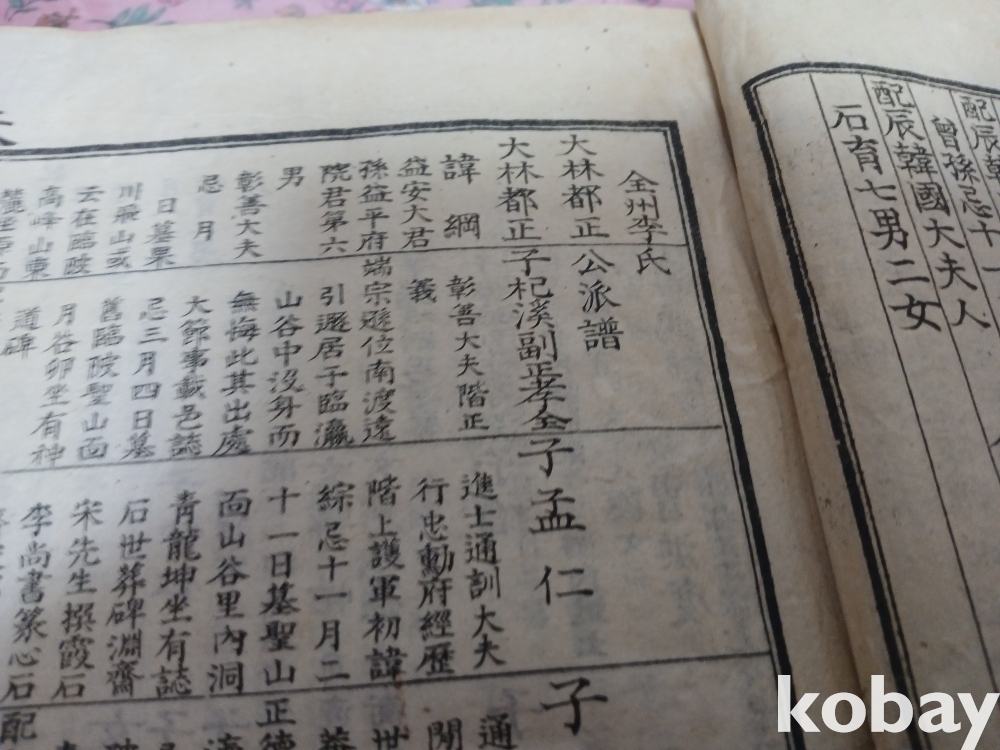 配辰韓
曾孫忌十一
配辰韓國大夫人
石育七男二女
全州李氏
大林都正公派譜
大林都正
諱綱
益安大君
孫益平府
院君第六
男
彰善大夫
忌月
日墓栗
川飛山或
云在臨陂
高峰山東
子杞溪副正孝全
彰善大夫階正
義
端宗遜位南渡遠
引遯居于臨瀛
山谷中沒身而
無悔此其出處
大節事載邑誌
忌三月四日墓
舊臨陂聖山面
月谷卯坐有神
道碑
子孟仁
進士通訓大夫
行忠勳府經歷
階上護軍初諱
綜忌十一月二
十一日墓聖山
面山谷里內洞
靑龍坤坐有誌
石世葬碑淵齋
宋先生撰霞石
李尙書篆心石
子
通
閒
世
正德
配
kobay